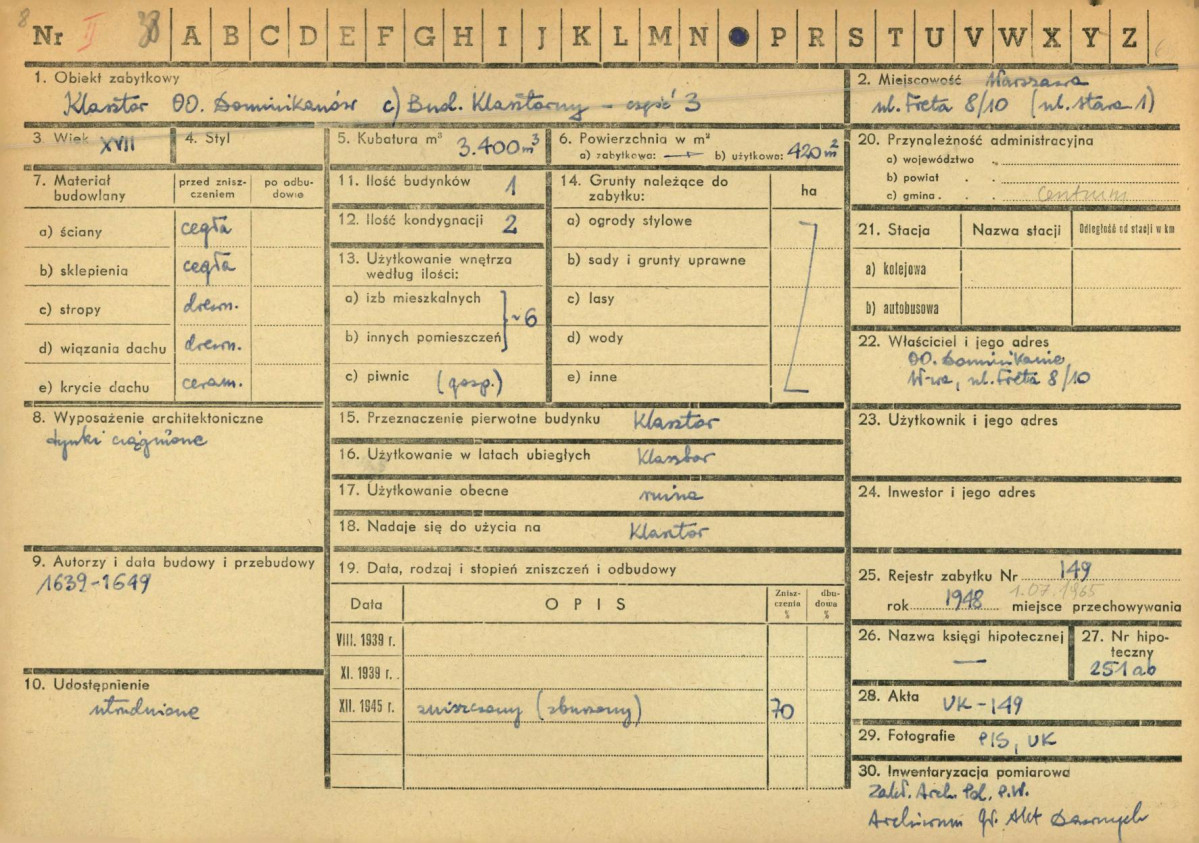 8
Nr II A B C D E F G H I J K L M N P R S T U V W X Y Z
1. Obiekt zabytkowy
Klasztor OO. Dominikanów c) Bud. Klasztorny – część 3
2. Miejscowość Warszawa
ul. Freta 8/10 (ul. Stara 1)
3. Wiek XVII
4. Styl
5. Kubatura m³ 3.400 m³
6. Powierzchnia w m²
a) zabytkowa: — b) użytkowa: 420 m²
7. Materiał budowlany
przed zniszczeniem
po odbudowie
a) ściany cegła
b) sklepienia cegła
c) stropy drewn.
d) wiązania dachu drewn.
e) krycie dachu ceram.
8. Wyposażenie architektoniczne
tynki ciągnione
9. Autorzy i data budowy i przebudowy
1639-1649
10. Udostępnienie
utrudnione
11. Ilość budynków 1
12. Ilość kondygnacji 2
13. Użytkowanie wnętrza
według ilości:
a) izb mieszkalnych
b) innych pomieszczeń } ~6
c) piwnic (gosp.)
14. Grunty należące do
zabytku:
ha
a) ogrody stylowe
b) sady i grunty uprawne
c) lasy
d) wody
e) inne
15. Przeznaczenie pierwotne budynku Klasztor
16. Użytkowanie w latach ubiegłych Klasztor
17. Użytkowanie obecne ruina
18. Nadaje się do użycia na Klasztor
19. Data, rodzaj i stopień zniszczeń i odbudowy
Data OPIS Zniszczenia % dbudowa %
VIII. 1939 r.
XI. 1939 r.
XII. 1945 r. zniszczony (zburzony) 70
20. Przynależność administracyjna
a) województwo
b) powiat
c) gmina Centrum
21. Stacja Nazwa stacji Odległość od stacji w km
a) kolejowa
b) autobusowa
22. Właściciel i jego adres
OO. Dominikanie,
W-wa, ul. Freta 8/10
23. Użytkownik i jego adres
24. Inwestor i jego adres
25. Rejestr zabytku Nr 149
1.07.1965
rok 1948 miejsce przechowywania
26. Nazwa księgi hipotecznej
—
27. Nr hipoteczny
251 ab
28. Akta UK-149
29. Fotografie PIS, UK
30. Inwentaryzacja pomiarowa
Zakł. Arch. Pol. P.W.
Archiwum Gł. Akt Dawnych